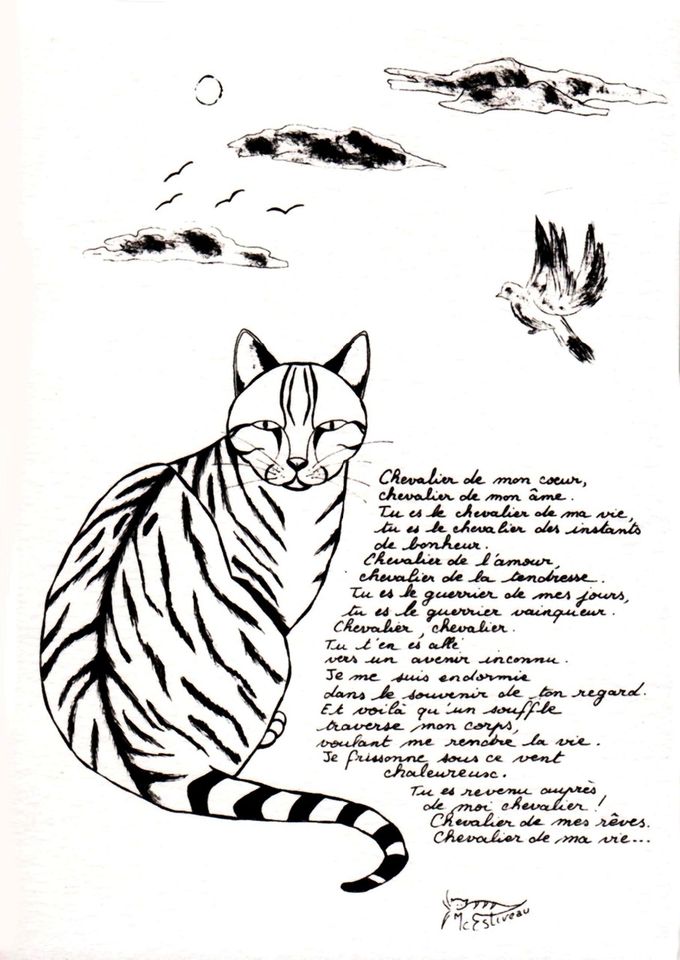 Chevalier de mon coeur,
chevalier de mon âme.
Tu es le chevalier de ma vie,
tu es le chevalier des instants
de bonheur.
Chevalier de l'amour,
chevalier de la tendresse.
Tu es le guerrier de mes jours,
tu es le guerrier vainqueur.
Chevalier, chevalier.
Tu t'en es allé
vers un avenir inconnu.
Je me suis endormie
dans le souvenir de ton regard.
Et voilà qu'un souffle
traverse mon corps,
voulant me rendre la vie.
Je frissonne sous ce vent
chaleureux.
Tu es revenu auprès
de moi chevalier !
Chevalier de mes rêves.
Chevalier de ma vie...
McEstiveau